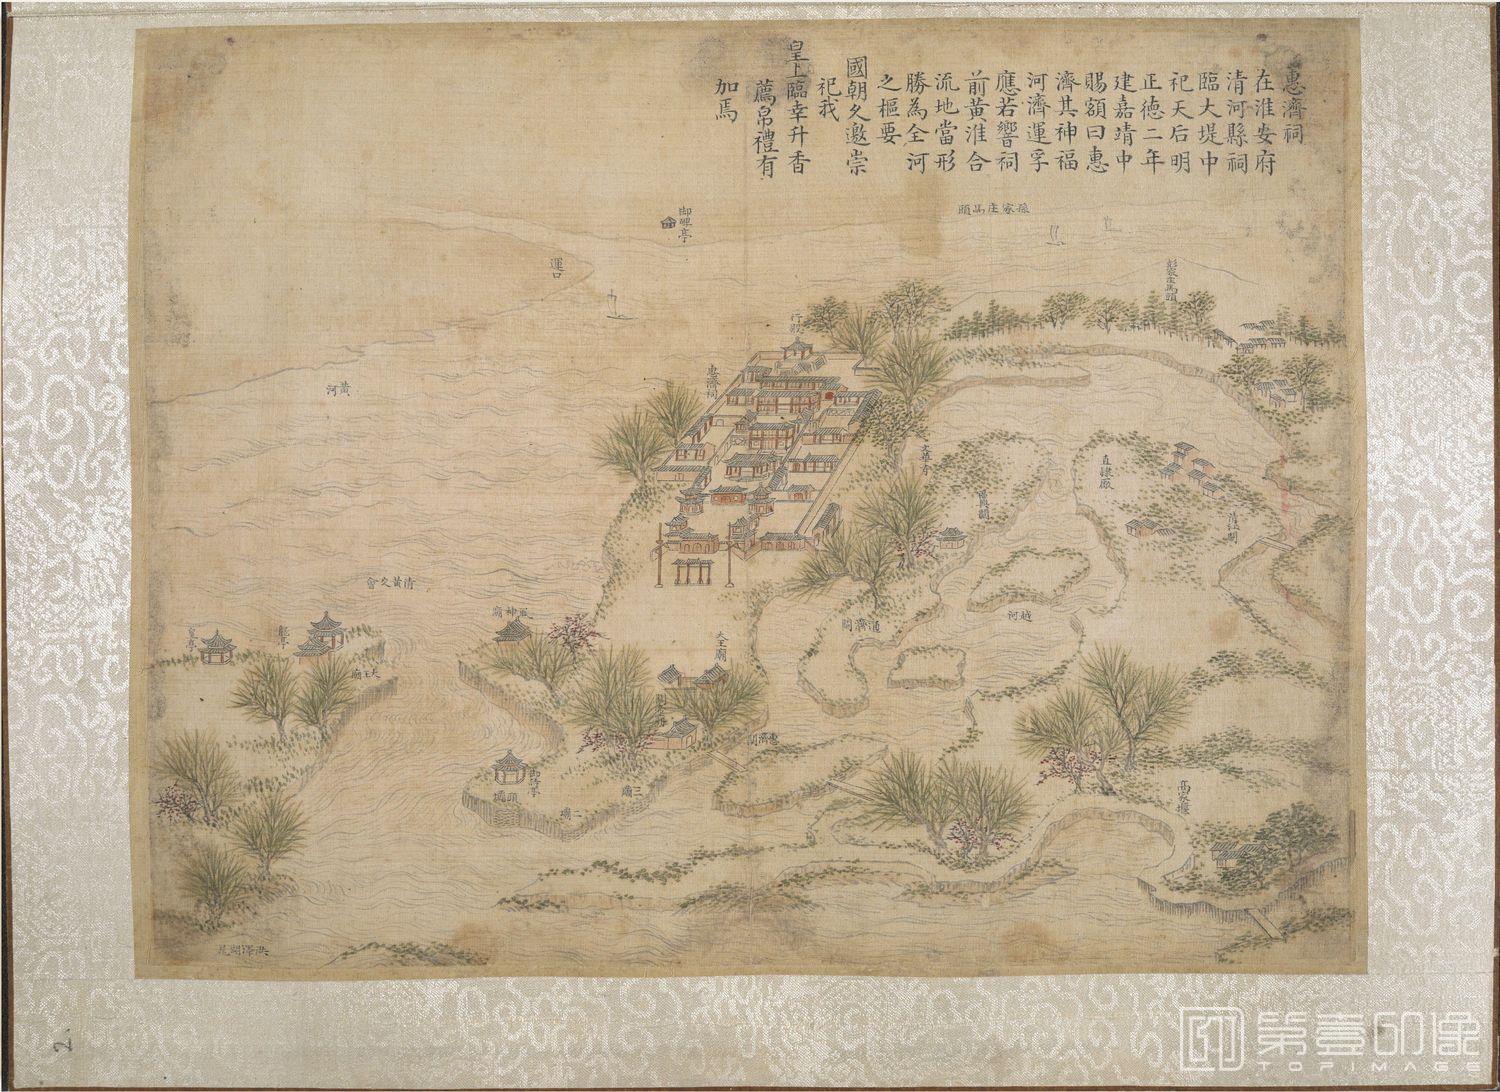 惠濟祠
在淮安府
清河縣祠
臨大堤中
祀天后明
正德二年
建嘉靖中
賜額曰惠
濟其神福
河濟運孚
應若響祠
前黃淮合
流地當形
勝為全河
之樞要
國朝久邀崇
祀我
皇上臨幸升香
薦帛禮有
加焉
孫家庄馬頭
御碑亭
運口
彭家庄馬頭
行殿
惠濟祠
黃河
文華寺
直隸廠
清江閘
清黃交會
越河
通濟閘
風神廟
大王廟
皇亭
龍亭
大王廟
惠濟閘
頭壩
二壩
三壩
高家堰
2.
第壹印像
TOPIMAGE